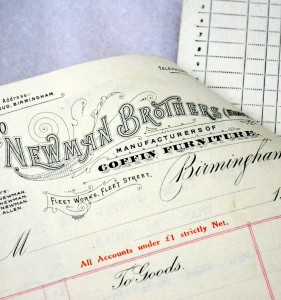 Address:
BIRMINGHAM.
TELEPHONE
NEWMAN BROTHERS
MANUFACTURERS OF
COFFIN FURNITURE.
FLEET WORKS, FLEET STREET,
Birmingham
NEWMAN.
NEWMAN.
NEWMAN.
ALLEN.
M
1
All Accounts under £1 strictly Net.
To Goods.